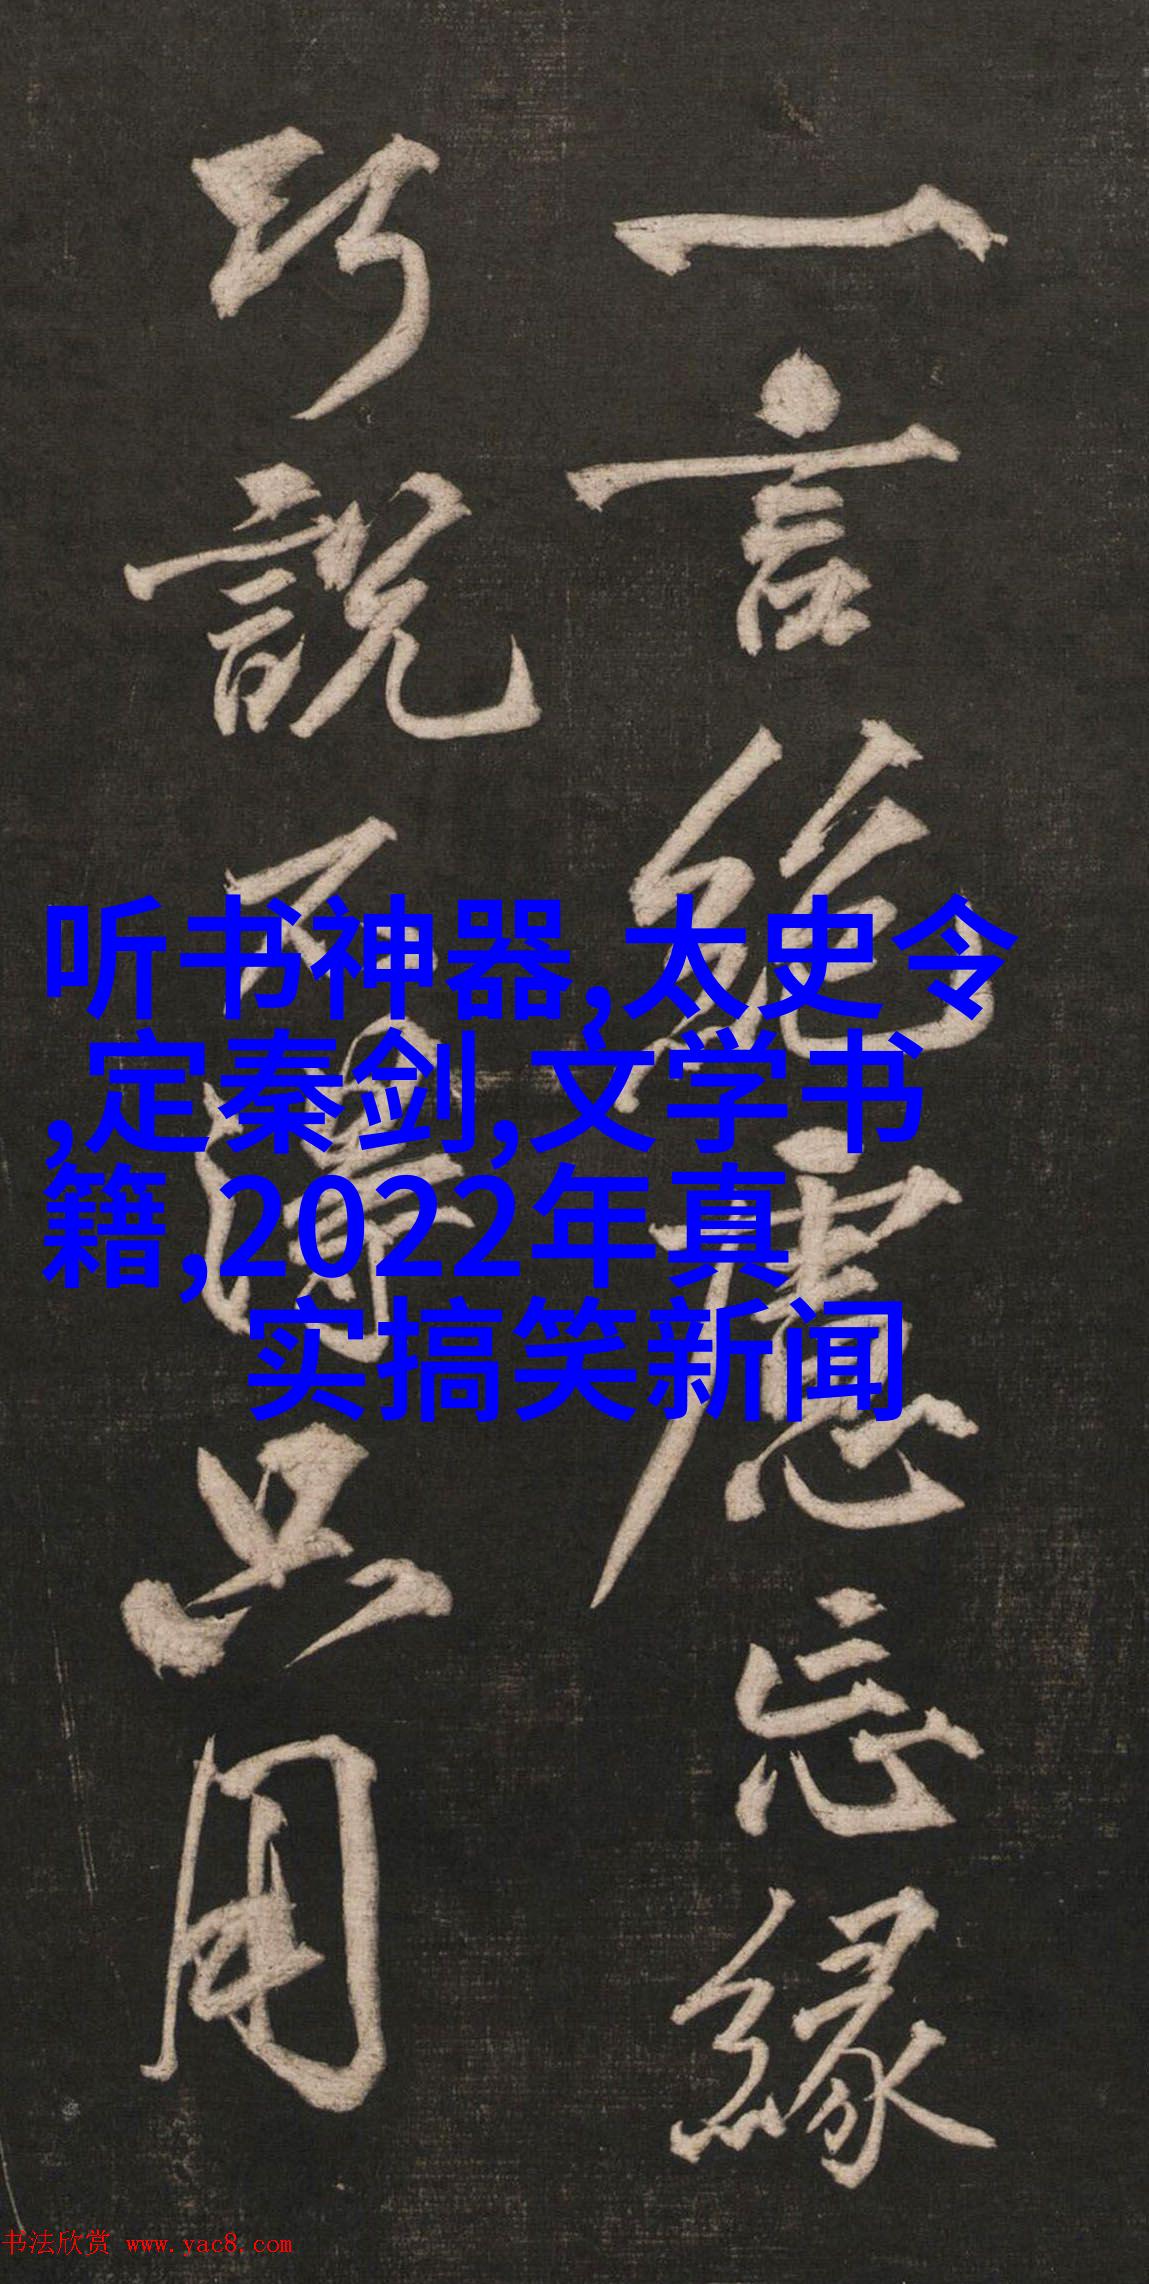 一言絶慮忘緣
巧說不得只用
听书神器,太史令
,定秦剑,文学书
籍,2022年真
实搞笑新闻
书法欣赏 www.yac8.com